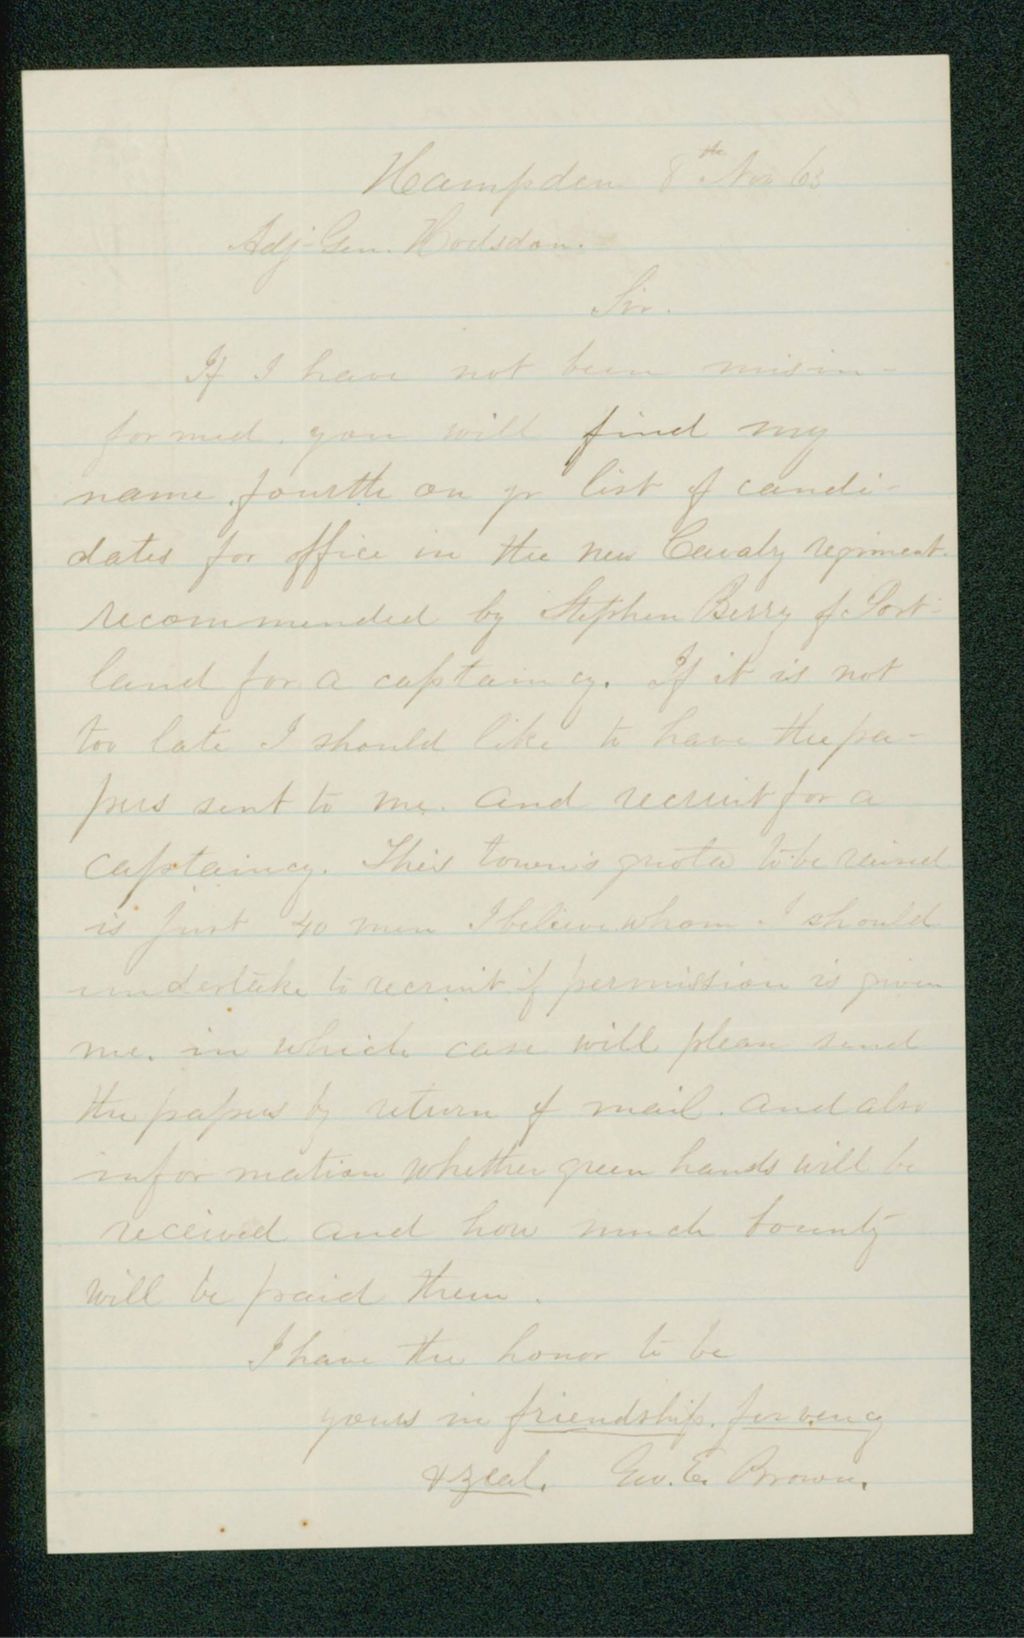 Hampden 8th Nov 63
Adj. Gen. Hodsdon.
Sir.
If I have not been misin-
formed, you will find my
name, fourth on yr list of candi-
dates for office in the new Cavalry regiment.
recommended by Stephen Berry of Port-
land for a captaincy. If it is not
too late I should like to have the pa-
pers sent to me. and recruit for a
captaincy. This town's quota to be raised
is just 40 men I believe whom I should
undertake to recruit if permission is given
me. in which case will please send
the papers by return of mail. and also
information whether green hands will be
received and how much bounty
will be paid them.
I have the honor to be
yours in friendship. fervency
& zeal. Geo. E. Brown.